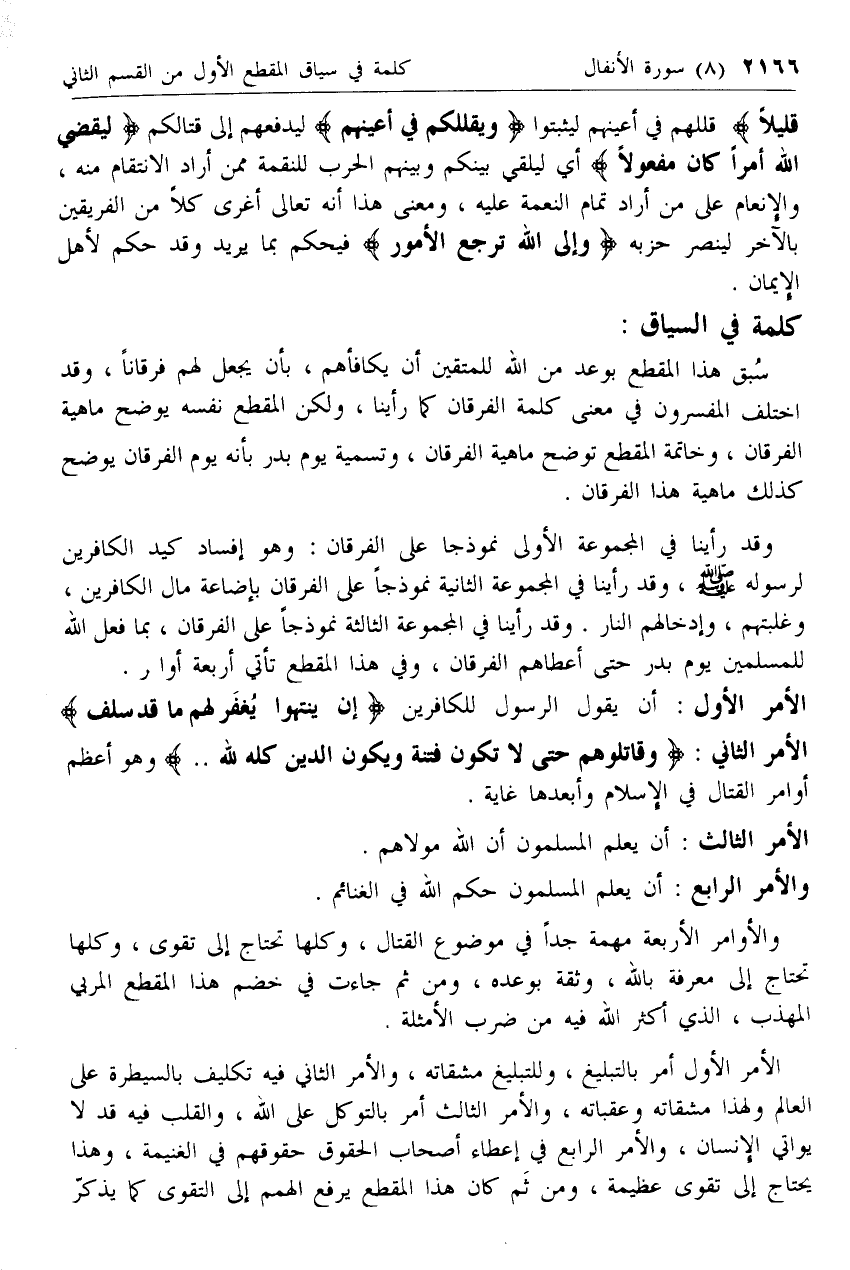 ٢١٦٦ (٨) سورة الأنفال كلمة في سياق المقطع الأول من القسم الثاني
قليلاً ﴾ قللهم في أعينهم ليثبتوا ﴿ ويقللكم في أعينهم ﴾ ليدفعهم إلى قتالكم ﴿ ليقضي
الله أمراً كان مفعولاً ﴾ أي ليلقي بينكم وبينهم الحرب للنقمة ممن أراد الانتقام منه ،
والإنعام على من أراد تمام النعمة عليه ، ومعنى هذا أنه تعالى أغرى كلاً من الفريقين
بالآخر لينصر حزبه ﴿ وإلى الله ترجع الأمور ﴾ فيحكم بما يريد وقد حكم لأهل
الإيمان .
كلمة في السياق :
سُبق هذا المقطع بوعد من الله للمتقين أن يكافأهم ، بأن يجعل لهم فرقاناً ، وقد
اختلف المفسرون في معنى كلمة الفرقان كما رأينا ، ولكن المقطع نفسه يوضح ماهية
الفرقان ، وخاتمة المقطع توضح ماهية الفرقان ، وتسمية يوم بدر بأنه يوم الفرقان يوضح
كذلك ماهية هذا الفرقان .
وقد رأينا في المجموعة الأولى نموذجا على الفرقان : وهو إفساد كيد الكافرين
لرسوله ﷺ ، وقد رأينا في المجموعة الثانية نموذجاً على الفرقان بإضاعة مال الكافرين ،
وغلبتهم ، وإدخالهم النار . وقد رأينا في المجموعة الثالثة نموذجاً على الفرقان ، بما فعل الله
للمسلمين يوم بدر حتى أعطاهم الفرقان ، وفي هذا المقطع تأتي أربعة أوا ر .
الأمر الأول : أن يقول الرسول للكافرين ﴿ إن ينتهوا يُغفَر لهم ما قد سلف ﴾
الأمر الثاني : ﴿ وقاتلوهم حتى لا تكون فتنة ويكون الدين كله لله .. ﴾ وهو أعظم
أوامر القتال في الإسلام وأبعدها غاية .
الأمر الثالث : أن يعلم المسلمون أن الله مولاهم .
والأمر الرابع : أن يعلم المسلمون حكم الله في الغنائم .
والأوامر الأربعة مهمة جداً في موضوع القتال ، وكلها تحتاج إلى تقوى ، وكلها
تحتاج إلى معرفة بالله ، وثقة بوعده ، ومن ثم جاءت في خضم هذا المقطع المربي
المهذب ، الذي أكثر الله فيه من ضرب الأمثلة .
الأمر الأول أمر بالتبليغ ، وللتبليغ مشقاته ، والأمر الثاني فيه تكليف بالسيطرة على
العالم ولهذا مشقاته وعقباته ، والأمر الثالث أمر بالتوكل على الله ، والقلب فيه قد لا
يواتي الإنسان ، والأمر الرابع في إعطاء أصحاب الحقوق حقوقهم في الغنيمة ، وهذا
يحتاج إلى تقوى عظيمة ، ومن ثَم كان هذا المقطع يرفع الهمم إلى التقوى كما يذكرّ